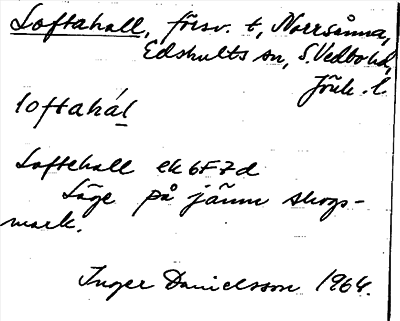 Loftahall, försv. t, Norrsånna,
Edshults sn, S. Vedbo hd,
Jönk. l.
loftahál
Loftehall ek 6F7d
Läge på jämn skogs-
mark.
Inger Danielsson 1964.